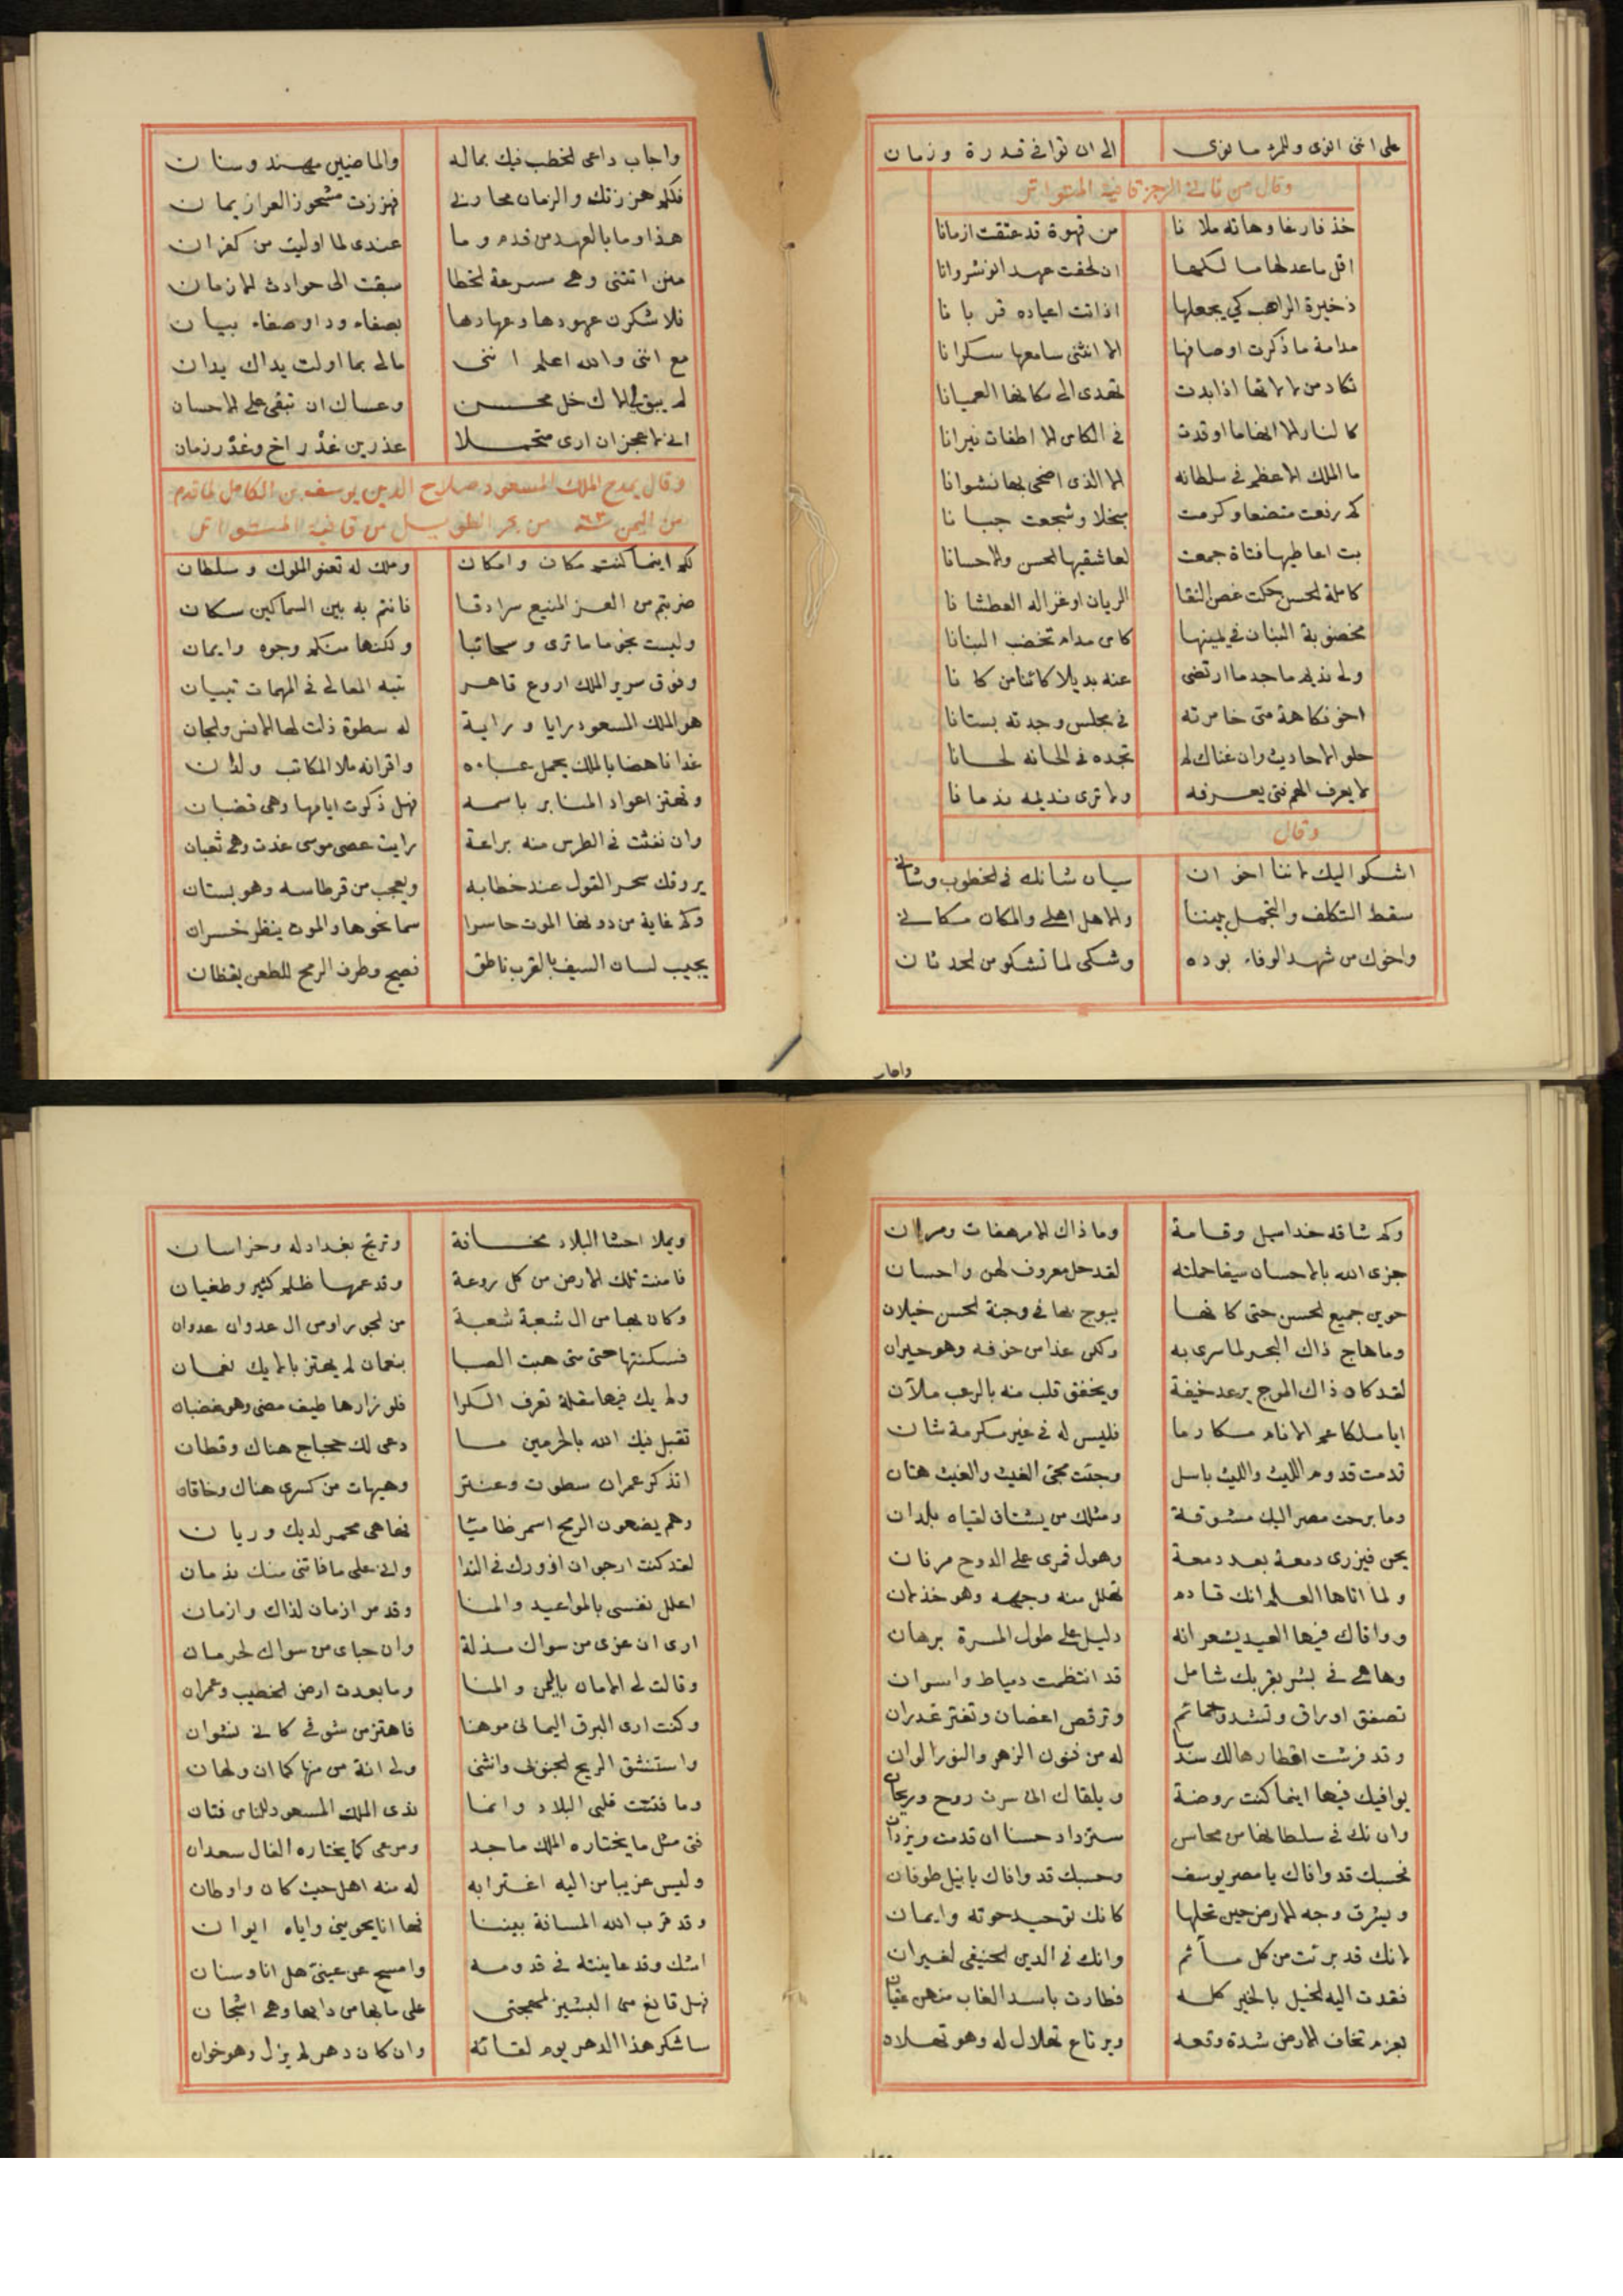 على اننى انوى وللمرء ما نوى الى ان توافى قدرة وزمان
وقال من ثانى الرجز قافية المتواتر
خذ فارغا وهاته ملا نا من قهوة قد عتقت ازمانا
اقل ما عد لها مالكها ان لحقت عهد انوشروانا
ذخيرة الراهب كي يجعلها اذا اتت اعياده قربا نا
مدامة ما ذكرت اوصافها الا انثنى سامعها سكرانا
تكاد من لالائها اذا بدت تهدى الى مكانها العميانا
كالنار الا انها ما اوقدت فى الكاس الا اطفات نيرانا
ما الملك الاعظم فى سلطانه الا الذى اضحى بها نشوانا
كم رفعت متضعا وكرمت مبخلا وشجعت جبا نا
بت اعاطيها فتاة جمعت لعاشقيها الحسن والاحسانا
كاملة الحسن حكت غصن النقا الريان او غزاله العطشا نا
مخضوبة البنان فى يمينها كاس مدام تخضب البنانا
ولى نديم ماجد ما ارتضى عنه بديلا كائنا من كا نا
اخو فكاهة متى خامرته فى مجلس وجدته بستانا
حلو الاحاديث وان غناك لم تجده فى الحانه لحانا
لا يعرف الهم فتى يعرفه ولا ترى نديمه ندمانا
وقال
اشكو اليك لاننا اخوان سيان شانك فى الخطوب وشانى
سقط التكلف والتجمل بيننا والاهل اهلى والمكان مكانى
واخوك من شهد الوفاء بوده وشكى لما تشكو من الحدثان
واجاب
واجاب داعى الخطب فيك بماله والماضيين مهند وسنان
فلكم هززتك والزمان محاربى فهززت مشحوذ العرار يمان
هذا وما بالعهد من قدم وما عندى لما اوليت من كفران
منن اتتنى وهى مسرعة الخطا سبقت الى حوادث الازمان
فلاشكرن عهودها وعهادها بصفاء ود او صفاء بيان
مع اننى والله اعلم اننى مالى بما اولت يداك يدان
لم يبق لى الاك خل محسن وعساك ان تبقى على الاحسان
انى لاعجز ان ارى متحملا عذرين غدر اخ وغدر زمان
وقال يمدح الملك المسعود صلاح الدين يوسف بن الكامل لما قدم
من اليمن من بحر الطويل من قافية المتواتر
لكم اينما كنتم مكان وامكان وملك له تعنو الملوك وسلطان
ضربتم من العز المنيع سرادقا فانتم به بين السماكين سكان
وليست نجوما ما ترى وسحائبا ولكنها منكم وجوه وايمان
وفوق سرير الملك اروع قاهر تيبه المعالى فى المهمات تبيان
هو الملك المسعود رايا وراية له سطوة ذلت لها الانس والجان
غدا ناهضا بالملك يحمل عباه واقرانه ملا المكاتب ولدان
وتهتز اعواد المنابر باسمه فهل ذكرت ايامها وهى قضبان
وان نفثت فى الطرس منه براعة رايت عصى موسى غدت وهى ثعبان
يروقك سحر القول عند خطابه ويعجب من قرطاسه وهو بستان
وكم غاية من دونها الموت حاسرا سما نحوها والموت ينظر خسران
يجيب لسان السيف بالقرب ناطق فصيح وطرف الرمح للطعن يقظان
وكم شاقه خد اسيل وقامة وما ذاك الا مرهفات ومران
جزى الله بالاحسان سيفا حملته لقد حل معروف لهن واحسان
حوين جميع الحسن حتى كانها يبوح بها فى وجنة الحسن خيلان
وما هاج ذاك البحر لما سرى به ولكن غدا من خوفه وهو حيران
لقد كان ذاك الموج يرعد خيفة ويخفق قلب منه بالرعب ملآن
ايا ملكا عم الانام مكارما فليس له فى غير مكرمة شان
قدمت قدوم الليث والليث باسل وجئت مجئ الغيث والغيث هتان
وما برحت مصر اليك مشوقة ومثلك من يشتاق لقياه بلدان
يحن فيزرى دمعة بعد دمعة وهول قمرى على الدوح مرنان
ولما اتاها العلم انك قادم تهلل منه وجهه وهو جذلان
ووافاك فيها العيد يشعر انه دليل على طول المسرة برهان
وها هى فى بشر بقربك شامل قد انتظمت دمياط واسوان
تصفق اوراق وتشدو حمائم وترقص اغصان وتفتر غدران
وقد فرشت اقطارها لك سندسا له من فنون الزهر والنور الوان
يوافيك فيها اينما كنت روضة ويلقاك انى سرت روح وريحان
وان تك فى سلطانها من محاسن ستزداد حسنا ان قدمت ويزدان
فحسبك قد وافاك يا مصر يوسف وحسبك قد وافاك يا نيل طوفان
ويشرق وجه الارض حين تحلها كانك توحيد حوته وايمان
لانك قد برئت من كل مأثم وانك فى الدين الحنيفى لغيران
فقدت اليه الخيل بالخير كله فطارت باسد الغاب منهن عقبان
بعزم تخاف الارض شدة وقعه ويرتاع تهلال له وهو تهلان
ويملا احشا البلاد مخافة وترتج بغداد له وخراسان
فامنت تلك الارض من كل روعة وقد عمها ظلم كثير وطغيان
وكان بها من ال شعبة شعبة من الجور او من ال عدوان عدوان
فسكنتها حتى متى هبت الصبا بنعمان لم يهتز بالايك نعمان
ولم يك فيها مقلة تعرف الكرا فلو زارها طيف مضى وهو غضبان
تقبل فيك الله بالحرمين ما دعى لك حجاج هناك وقطان
اتذكر عمران سطوت وعنتر وهيهات من كسرى هناك وخاقان
وهم يضعون الرمح اسمر ظاميا فها هى محمر لديك وريان
لقد كنت ارجو ان ازورك فى الندا وانى على ما فاتنى منك ندمان
اعلل نفسى بالمواعيد والمنا وقد مر ازمان لذاك وازمان
ارى ان عزى من سواك مذلة وان حباى من سواك لحرمان
وقالت لى الامان باليمن والمنا وما بعدت ارض الخطيب وعمران
وكنت ارى البرق اليمانى موهنا فاهتز من شوقى كانى نشوان
واستنشق الريح الجنوبى وانثنى ولى انة من مزنها كما ان ولهان
وما فتنت قلبى البلاد وانما ندى الملك المسعود للناس فتان
فتى مثل ما يختاره الملك ماجد ومرعى كما يختاره الفال سعدان
وليس غريبا من اليه اغترابه له منه اهل حيث كان واوطان
وقد قرب الله المسافة بيننا فها انا يحوينى واياه ايوان
اشك وقد عاينته فى قدومه وامسح عن عينى هل انا وسنان
فهل قانع منى البشير لمهجتى على ما بها من دائها وهى اشجان
ساشكر هذا الدهر يوم لقائه وان كان دهر لم يزل وهو خوان